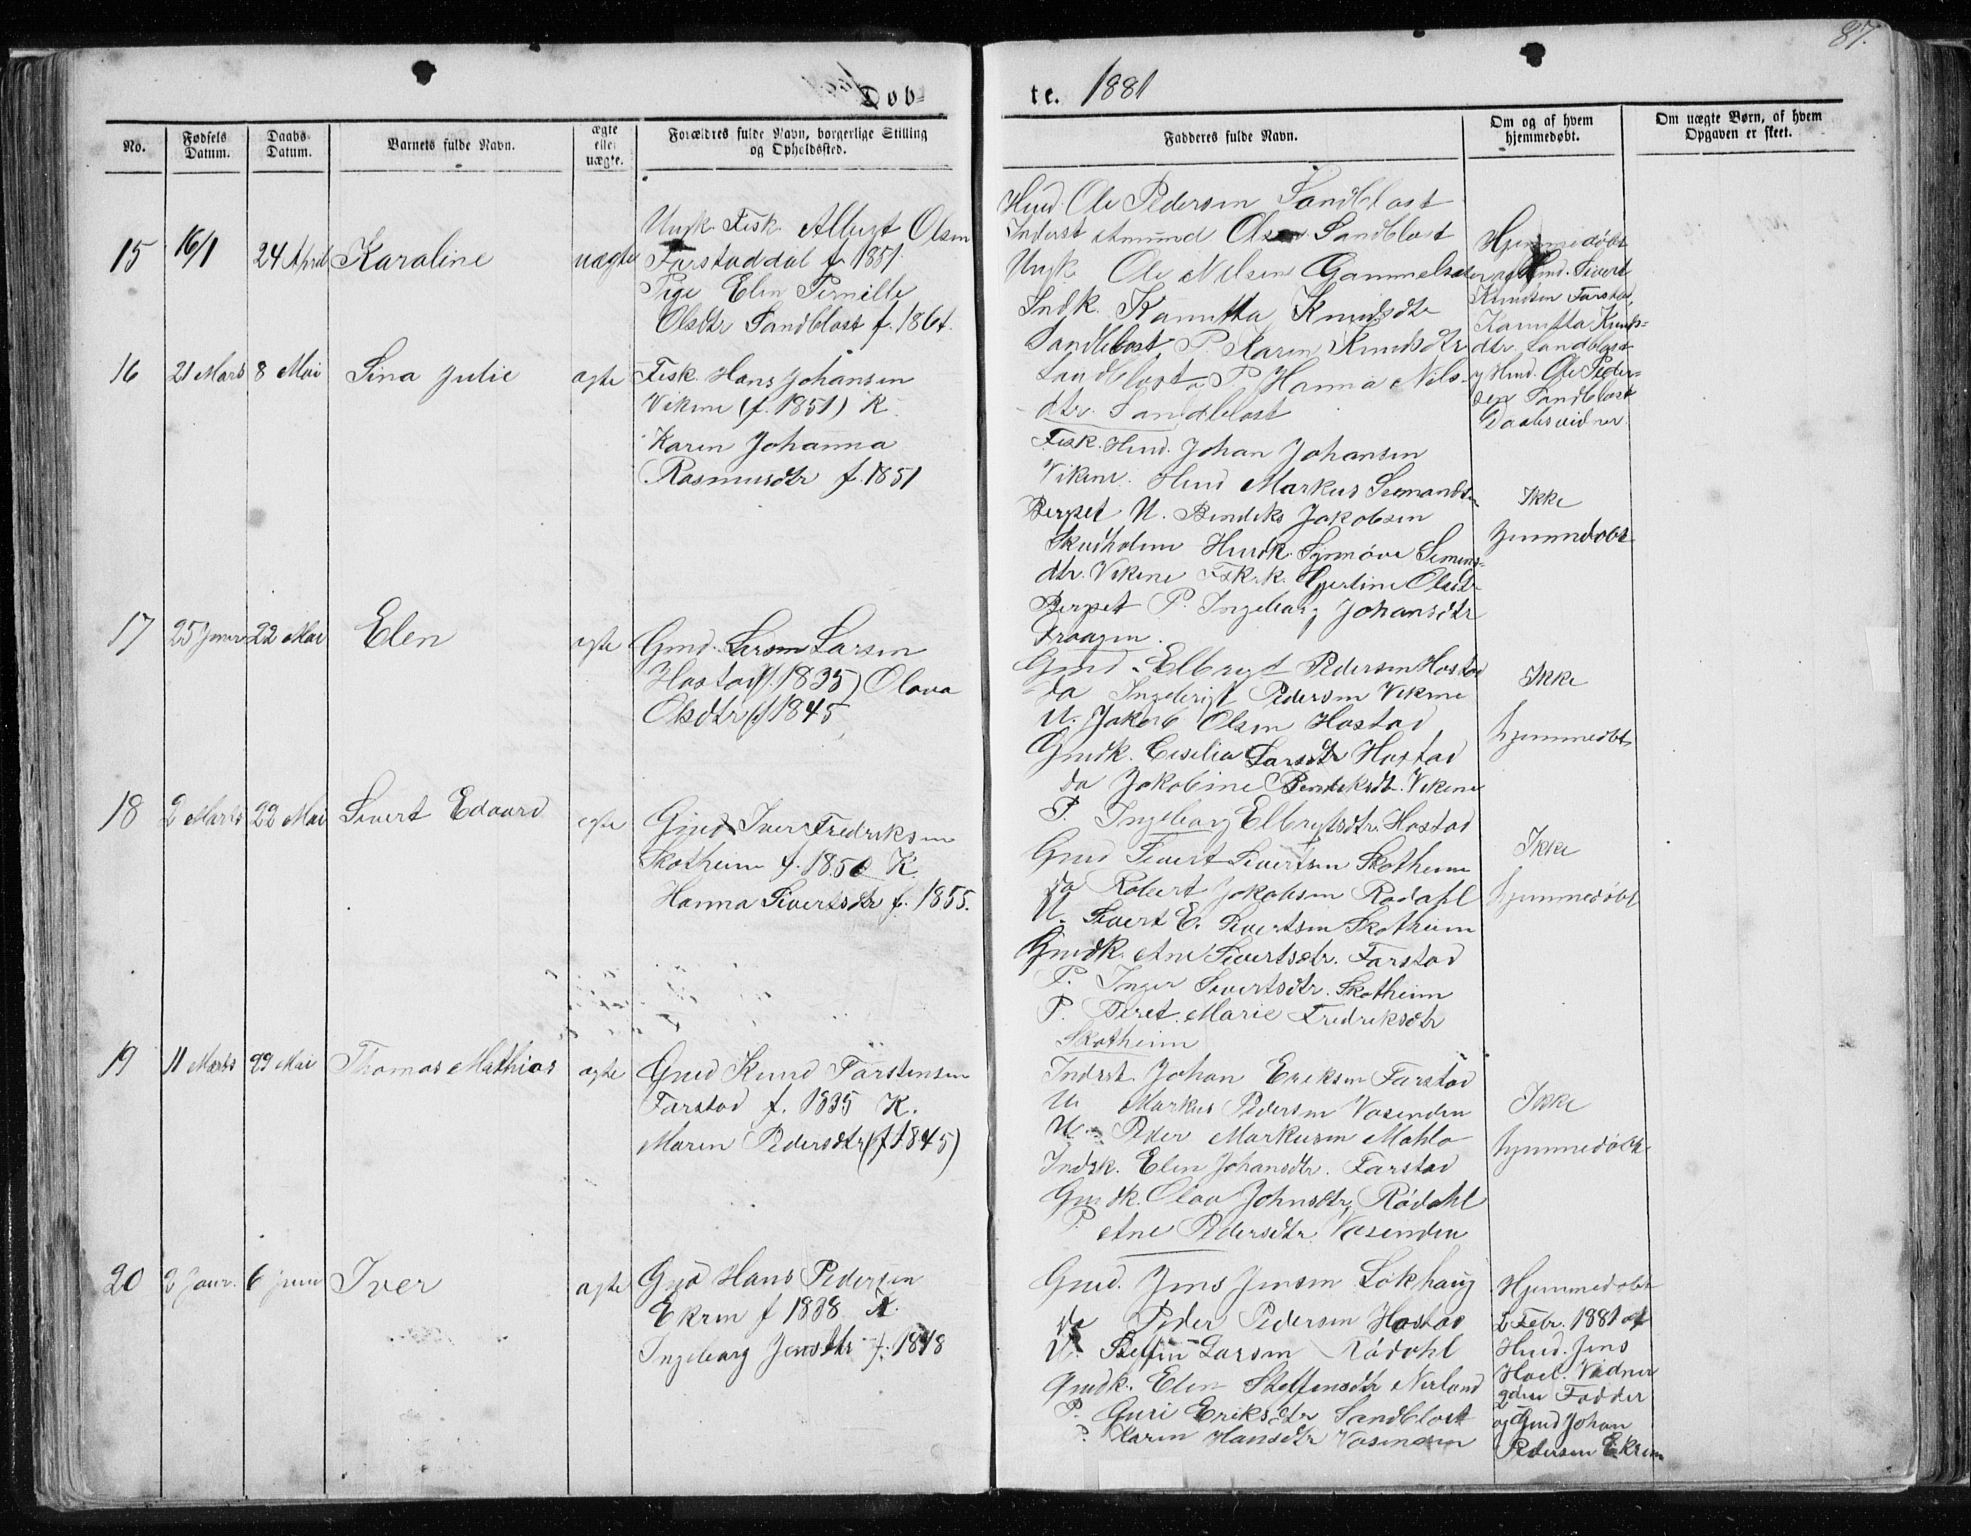 87.
Døb-
te. 1881
No.
Fødsels Datum.
Daabs-Datum.
Barnets fulde Navn.
ægte eller uægte.
Forældres fulde Navn, borgerlige Stilling og Opholdssted.
Fadderes fulde Navn.
Om og af hvem hjemmedøbt.
Om uægte Børn, af hvem Opgaven er skeet.
15 16/1 24 April Karoline uægte
Ungk. Fisk. Albert Olsen
Farstaddal f. 1851
Pige Elen Pernille
Olsdtr Sandblost f. 1861.
Hmd. Ole Pedersen Sandblost
Inderst Amund Olsen Sandblost
Ungk. Ole Nilsen Gammelsæter
Indk. Kanutta Knudsdtr
Sandblost P. Karen Knudsdtr
Sandblost P. Hanna Nils-
dtr. Sandblost
Hjemmedøbt
af Hmd. Sivert
Knudsen Farstad,
Kanutta Knuds-
dtr. Sandblost
og Hmd. Ole Peder-
sen Sandblost
Daabsvidner
16 21 Marts 8 Mai Sina Julie ægte
Fisk. Hans Johansen
Vikene (f. 1851) K.
Karen Johanna
Rasmusdtr f. 1851
Fisk. Hmd. Johan Johansen
Vikene. Hmd Markus
Berset U. Bendiks Jakobsen
Skudholm Hmdk. Synnøve Simens-
dtr. Vikene Fsk.k. Gjertine Olsdtr
Berset P. Ingeborg Johansdtr
Ikke
hjemmedøbt
17 25 Januar 22 Mai Elen ægte
Gmd. Larsen Larsen
Hostad (f. 1835) Olava
Olsdtr (f. 1845)
Gmd. Elbrygt Pedersen Hostad
do Ingebrigt Pedersen Vikene
U. Jakob Olsen Hostad
Gmdk. Cesilia Larsdtr Hostad
do Jakobine Bendiksdtr. Vikene
P. Ingeborg Elbrygtsdtr. Hostad
Ikke
hjemmedøbt
18 2 Marts 22 Mai Sivert Edvard ægte
Gmd Iver Fredriksen
Skotheim f. 1850 K.
Hanna Sivertsdtr f. 1855.
Gmd Sivert Sivertsen Skotheim
do Robert Jakobsen Rødahl
U. Sivert E. Sivertsen Skotheim
Gmdk. Ane Sivertsdtr. Farstad
P. Inger Sivertsdtr. Skotheim
P. Beret Marie Fredriksdtr
Skotheim
Ikke
hjemmedøbt
19 11 Marts 29 Mai Thomas Mathias ægte
Gmd Knud Tarstensen
Farstad f. 1835 K.
Maren Pedersdtr (f. 1845)
Inderst Johan Eriksen Farstad
U. Markus Pedersen Vasenden
U. Peder Markusen Mahlo
Indsk. Elen Johansdtr. Farstad
Gmdk. Olava Johnsdtr Rødahl
P. Ane Pedersdtr Vasenden
Ikke
hjemmedøbt
20 2 Janr. 6 Juni Iver ægte
Gmd Hans Pedersen
Ekren f 1838 K.
Ingeborg Jensdtr f. 1848
Gmd. Jens Jensen Løkhaug
do Peder Pedersen Hostad
U. Steffen Larsen Rødahl
Gmdk. Elen Steffensdtr Nerland
P. Guri Eriksdtr Sandblost
P. Karen Hansdtr Vasenden
Hjemmedøbt
2 Febr. 1881 af
Hmd. Jens
Hoel. Vidner
2den Fadder
og Gmd Johan
Pedersen Ekren